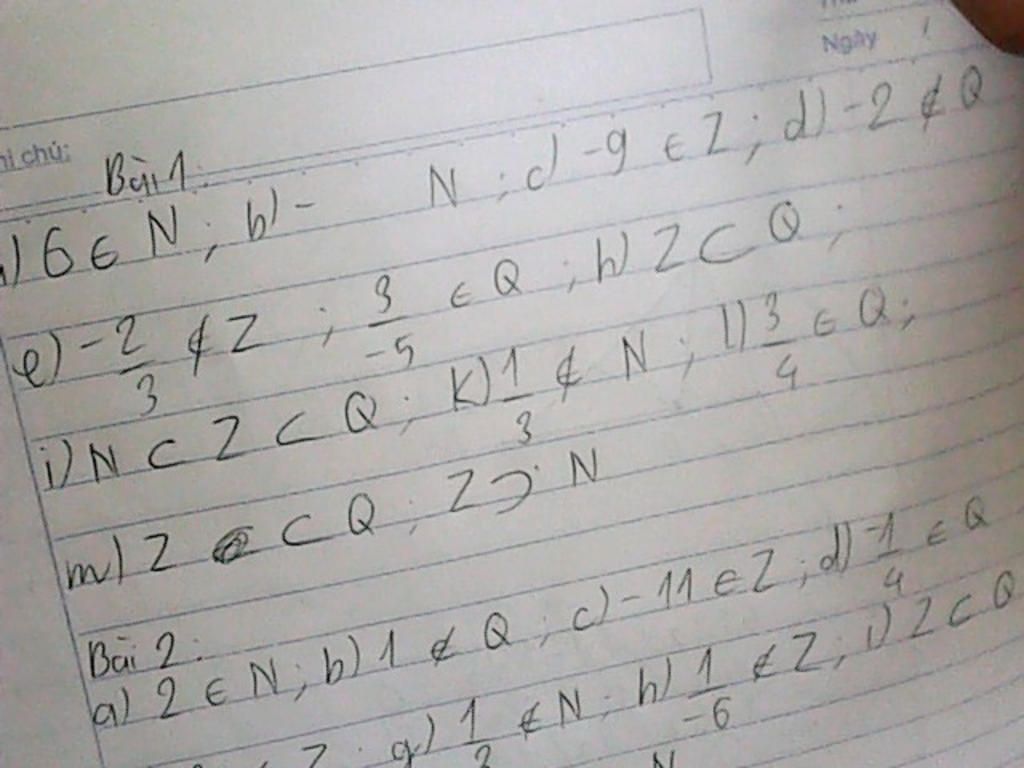 Ngày
hi chú:
Bài 1:
a) 6 ∈ N ; b) - N ; c) -9 ∈ Z ; d) -2 ∉ Q
e) -2/3 ∉ Z ; 3/-5 ∈ Q ; h) Z ⊂ Q ;
i) N ⊂ Z ⊂ Q ; k) 1/3 ∉ N ; l) 3/4 ∈ Q ;
m) Z ⊂ Q ; Z ⊃ N
Bài 2:
a) 2 ∈ N ; b) 1 ∉ Q ; c) -11 ∈ Z ; d) -1/4 ∈ Q
Z ; g) 1/2 ∉ N ; h) 1/-6 ∉ Z ; i) Z ⊂ Q
N